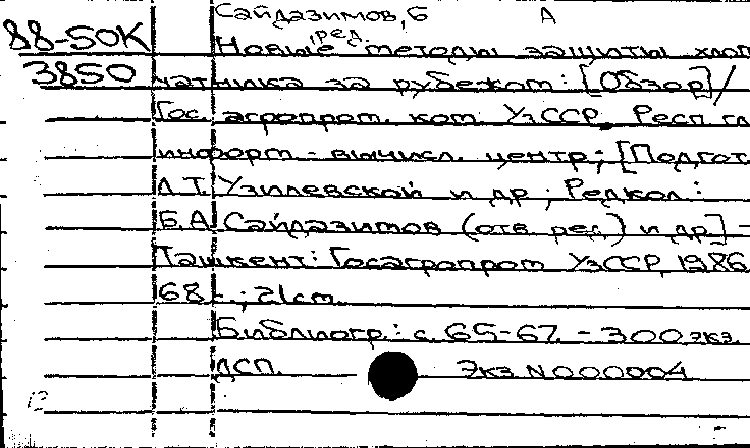 Сайдазимов, Б А
ред.
88-50К Новые методы защиты хлоп
3850 чатника за рубежом: [Обзор] /
Гос. агропром. ком. УзССР, Респ. гл.
информ.-вычисл. центр; [Подгот.
Л.Т. Узилевской и др.; Редкол.:
Б.А. Сайдазимов (отв. ред.) и др.] -
Ташкент: Госагропром УзССР, 1986
68 с.; 21см.
Библиогр.: с. 65-67. - 300 экз.
ДСП. Экз. N000004
12